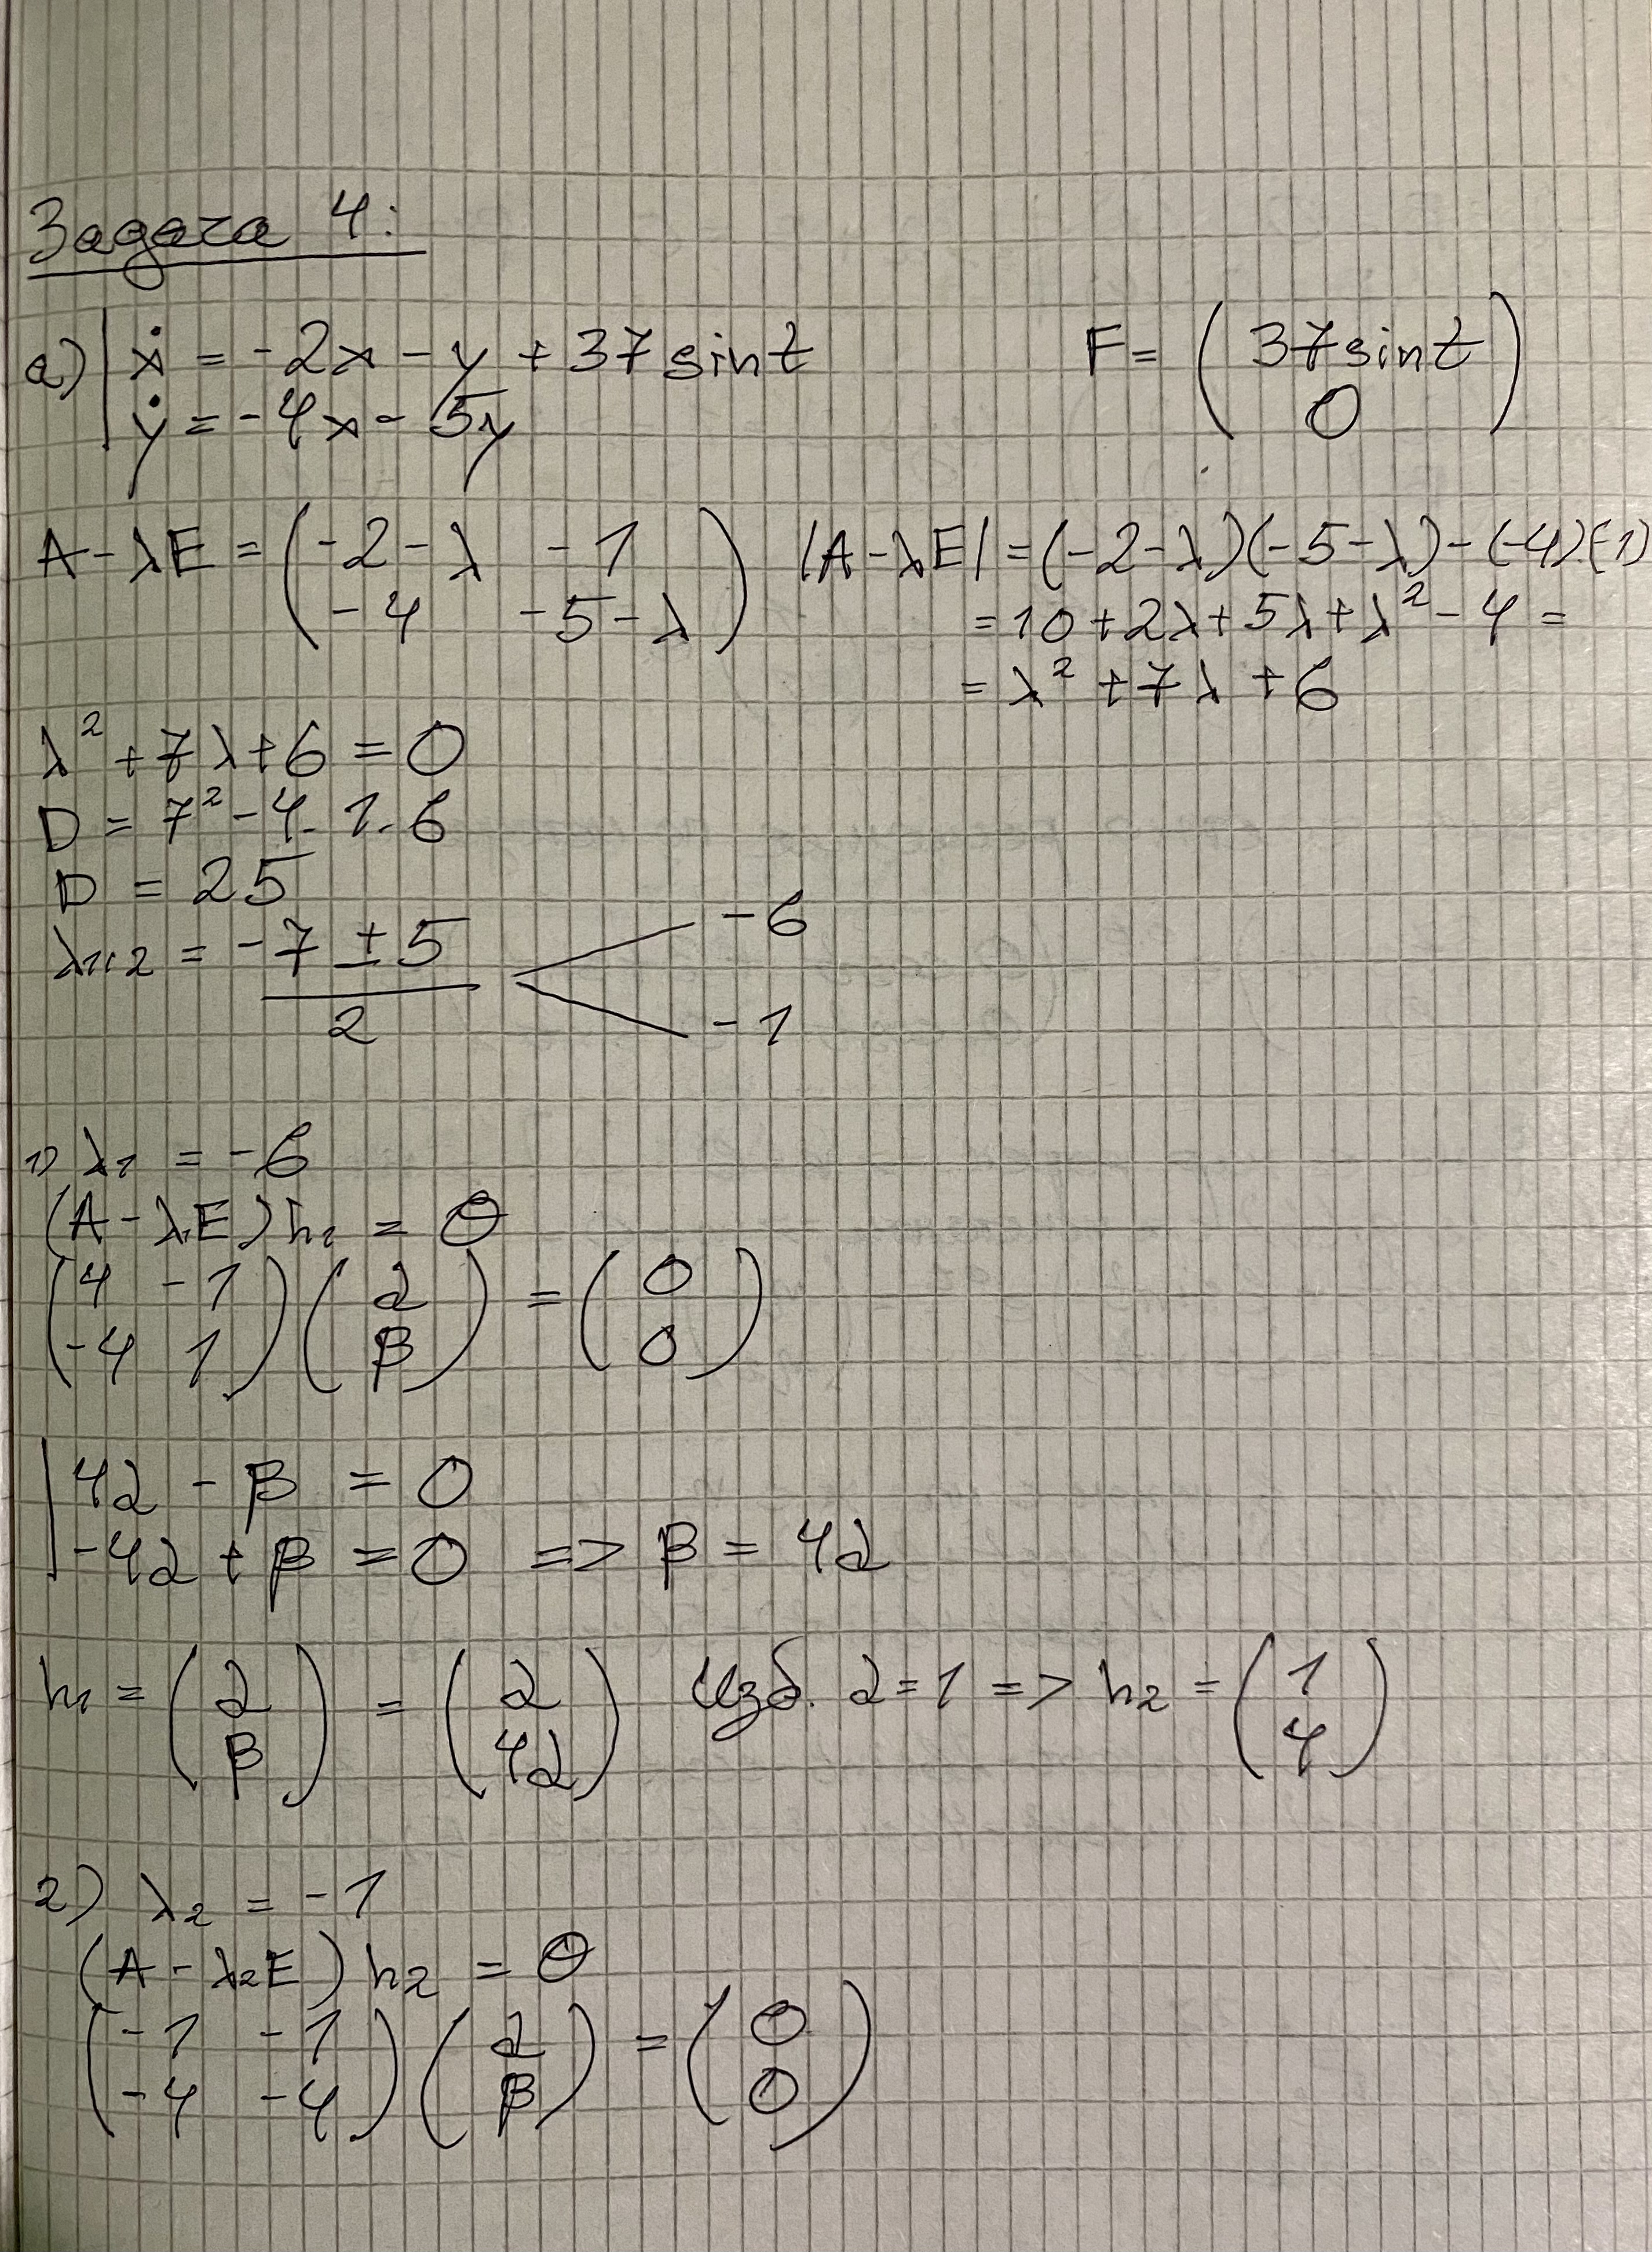 Задача 4:
а) | ẋ = -2x - y + 37 sin t
ẏ = -4x - 5y
F = ( 37 sin t
0 )
A - λE = ( -2-λ -1
-4 -5-λ )
|A - λE| = (-2-λ)(-5-λ) - (-4).(-1)
= 10 + 2λ + 5λ + λ² - 4 =
= λ² + 7λ + 6
λ² + 7λ + 6 = 0
D = 7² - 4. 1. 6
D = 25
λ1,2 = -7 ± 5 / 2 < -6
-1
1) λ1 = -6
(A - λ1E) h1 = θ
( 4 -1 ) ( α ) = ( 0 )
( -4 1 ) ( β ) ( 0 )
| 4α - β = 0
| -4α + β = 0 => β = 4α
h1 = ( α ) = ( α ) Изб. α = 1 => h2 = ( 1 )
( β ) ( 4α ) ( 4 )
2) λ2 = -1
(A - λ2E) h2 = θ
( -1 -1 ) ( α ) = ( 0 )
( -4 -4 ) ( β ) ( 0 )